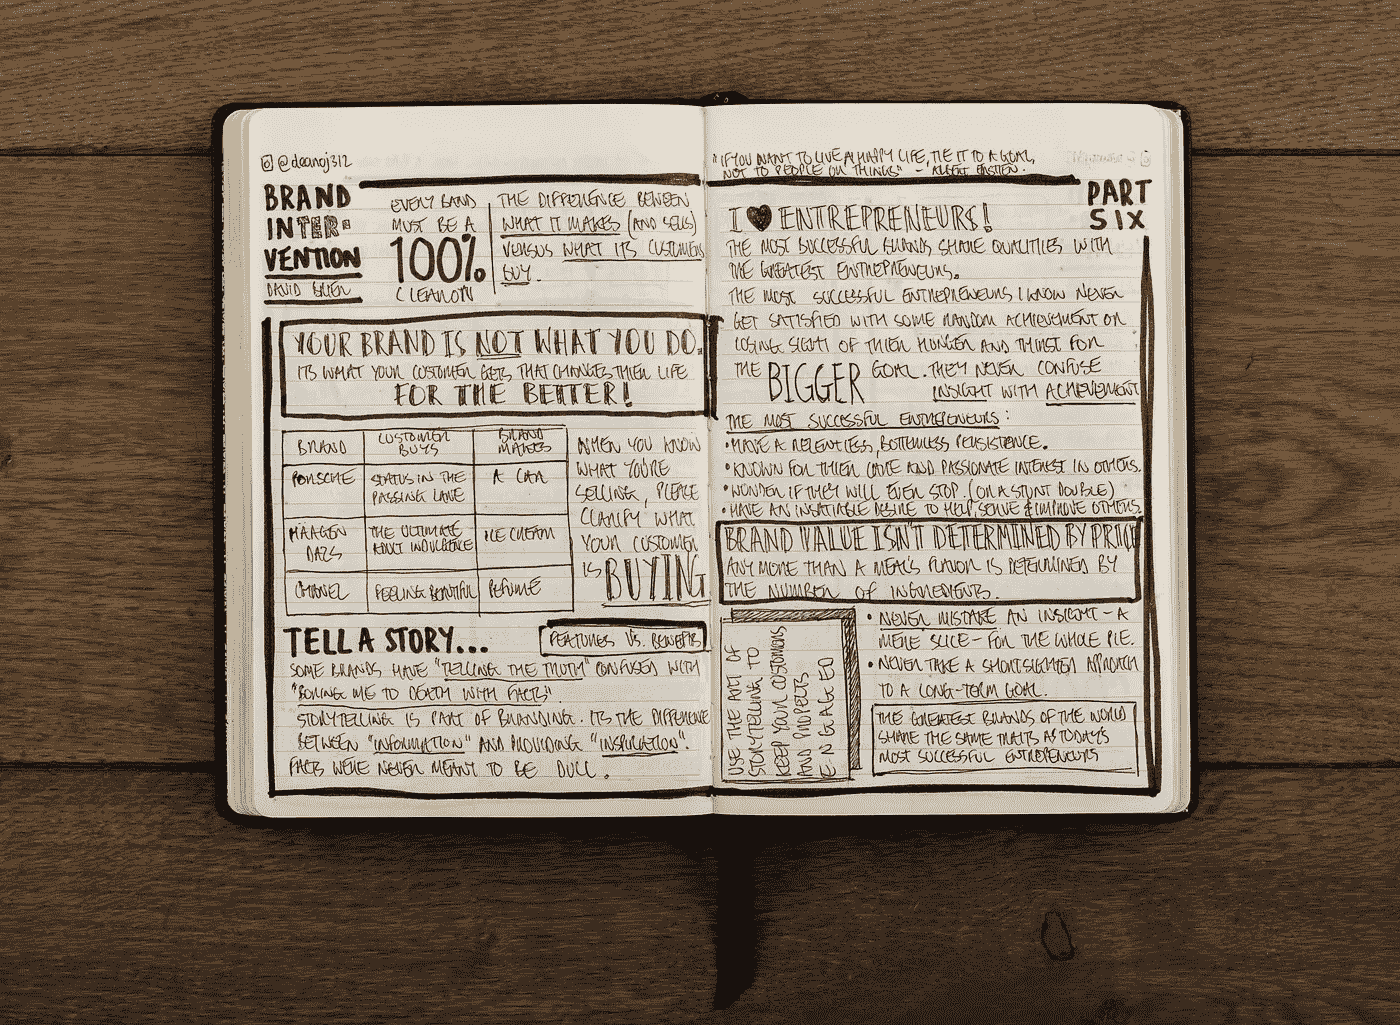 @deanoj312
BRAND
INTER-
VENTION
DAVID BRIER
EVERY BRAND
MUST BE A
100%
CLEAR ON
THE DIFFERENCE BETWEEN
WHAT IT MAKES (AND SELLS)
VERSUS WHAT ITS CUSTOMERS
BUY.
YOUR BRAND IS NOT WHAT YOU DO.
ITS WHAT YOUR CUSTOMER GETS THAT CHANGES THIER LIFE
FOR THE BETTER!
BRAND
CUSTOMER
BUYS
BRAND
MAKES
PORSCHE
STATUS IN THE
PASSING LANE
A CAR
HAAGEN
DAZS
THE ULTIMATE
ADULT INDULGENCE
ICE CREAM
CHANEL
FEELING BEAUTIFUL
PERFUME
WHEN YOU KNOW
WHAT YOU'RE
SELLING, PLEASE
CLARIFY WHAT
YOUR CUSTOMER
IS BUYING
TELL A STORY...
FEATURES VS. BENEFITS
SOME BRANDS HAVE "TELLING THE TRUTH" CONFUSED WITH
"BORING ME TO DEATH WITH FACTS!"
STORYTELLING IS PART OF BRANDING. ITS THE DIFFERENCE
BETWEEN "INFORMATION" AND PROVIDING "INSPIRATION".
FACTS WERE NEVER MEANT TO BE DULL.
"IF YOU WANT TO LIVE A HAPPY LIFE, TIE IT TO A GOAL,
NOT TO PEOPLE OR THINGS" - ALBERT EINSTIEN.
PART
SIX
I ♥ ENTREPRENEURS!
THE MOST SUCCESSFUL BRANDS SHARE QUALITIES WITH
THE GREATEST ENTREPRENEURS.
THE MOST SUCCESSFUL ENTREPRENEURS I KNOW NEVER
GET SATISFIED WITH SOME RANDOM ACHIEVEMENT OR
LOSING SIGHT OF THIER HUNGER AND THIRST FOR
THE BIGGER GOAL. THEY NEVER CONFUSE
INSIGHT WITH ACHIEVEMENT
THE MOST SUCCESSFUL ENTREPRENEURS:
• HAVE A RELENTLESS, BOTTOMLESS PERSISTENCE.
• KNOWN FOR THIER CARE AND PASSIONATE INTEREST IN OTHERS.
• WONDER IF THEY WILL EVER STOP. (OR A STUNT DOUBLE)
• HAVE AN INSATIABLE DESIRE TO HELP, SERVE & IMPROVE OTHERS.
BRAND VALUE ISN'T DETERMINED BY PRICE
ANY MORE THAN A MEAL'S FLAVOR IS DETERMINED BY
THE NUMBER OF INGREDIENTS.
USE THE ART OF
STORYTELLING TO
KEEP YOUR CUSTOMERS
AND PROSPECTS
E-N-G-A-G-ED
• NEVER MISTAKE AN INSIGHT - A
MERE SLICE - FOR THE WHOLE PIE.
• NEVER TAKE A SHORTSIGHTED APPROACH
TO A LONG-TERM GOAL.
THE GREATEST BRANDS OF THE WORLD
SHARE THE SAME TRAITS AS TODAY'S
MOST SUCCESSFUL ENTREPRENEURS